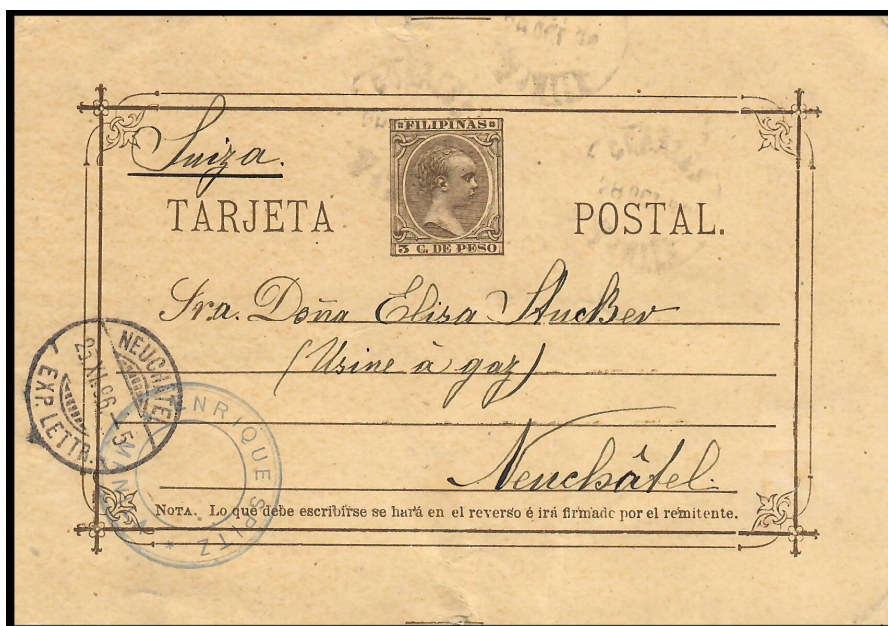 Suiza.
FILIPINAS
TARJETA POSTAL.
3 C. DE PESO
Sra. Doña Elisa Stucker
(Usine à gaz)
NEUCHATEL
25.XII.96.–5
EXP. LETTR.
ENRIQUE SPITZ
* MANILA *
Neuchâtel.
NOTA. Lo que debe escribirse se hará en el reverso é irá firmado por el remitente.